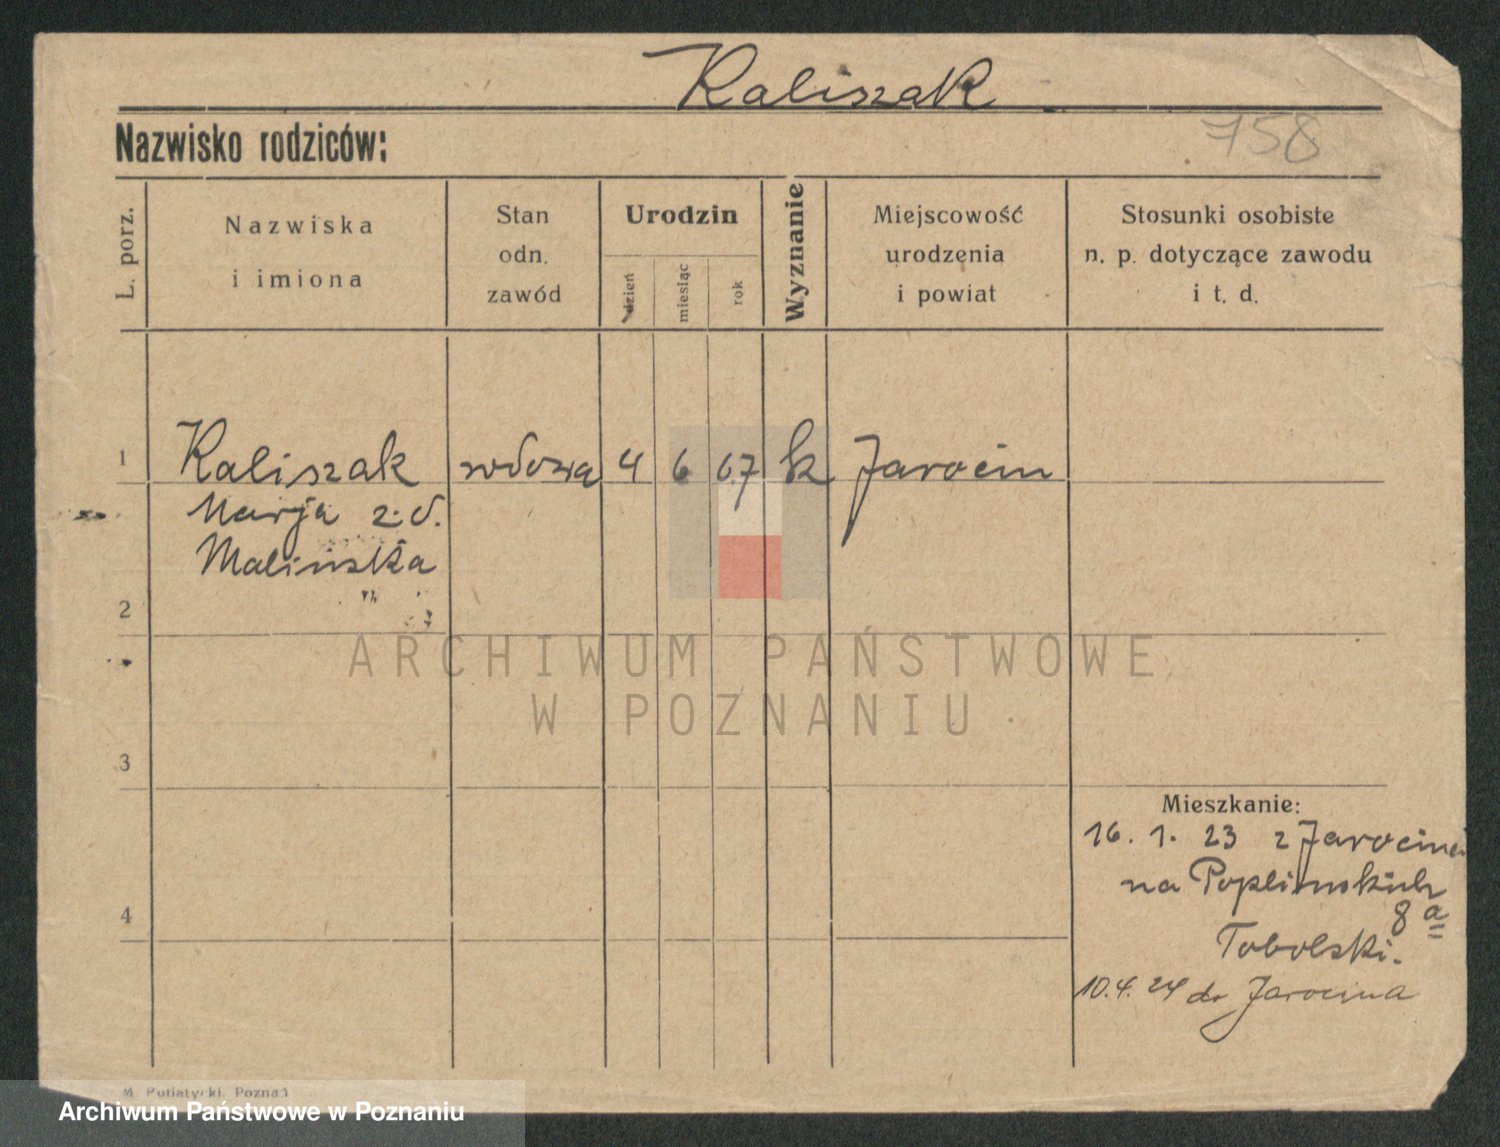 Kaliszak
Nazwisko rodziców:
758
L. porz.
Nazwiska
i imiona
Stan
odn.
zawód
Urodzin
dzień
miesiąc
rok
Wyznanie
Miejscowość
urodzenia
i powiat
Stosunki osobiste
n. p. dotyczące zawodu
i t. d.
1 Kaliszak wdowa 4 6 67 k Jarocin
Marja z.d.
Malińska
2
ARCHIWUM PAŃSTWOWE
W POZNANIU
3
Mieszkanie:
16. 1. 23 z Jarocina
na Poplińskich
8 a
4
Tobolski.
10.4.24 do Jarocina
M. Putiatycki, Poznań
Archiwum Państwowe w Poznaniu